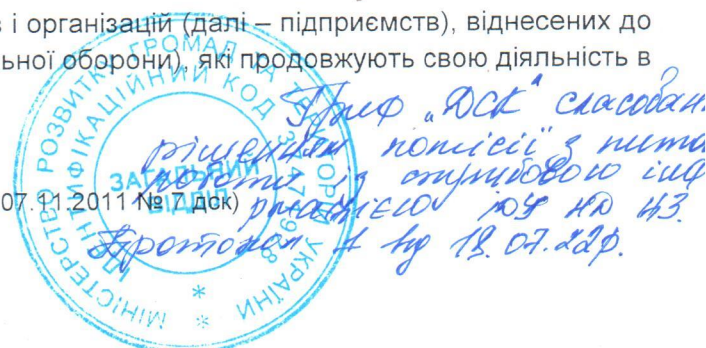 в і організацій (далі – підприємств), віднесених до
льної оборони), які продовжують свою діяльність в
Гриф „ДСК" скасовано
рішенням комісії з пита
роботи із службовою інф
07.11.2011 № 7 дск)
Протокол 1 від 18.07.22р.
МІНІСТЕРСТВО РОЗВИТКУ ГРОМАД ТА ТЕРИТОРІЙ УКРАЇНИ
ІДЕНТИФІКАЦІЙНИЙ КОД
ЗАГАЛЬНИЙ
ВІДДІЛ